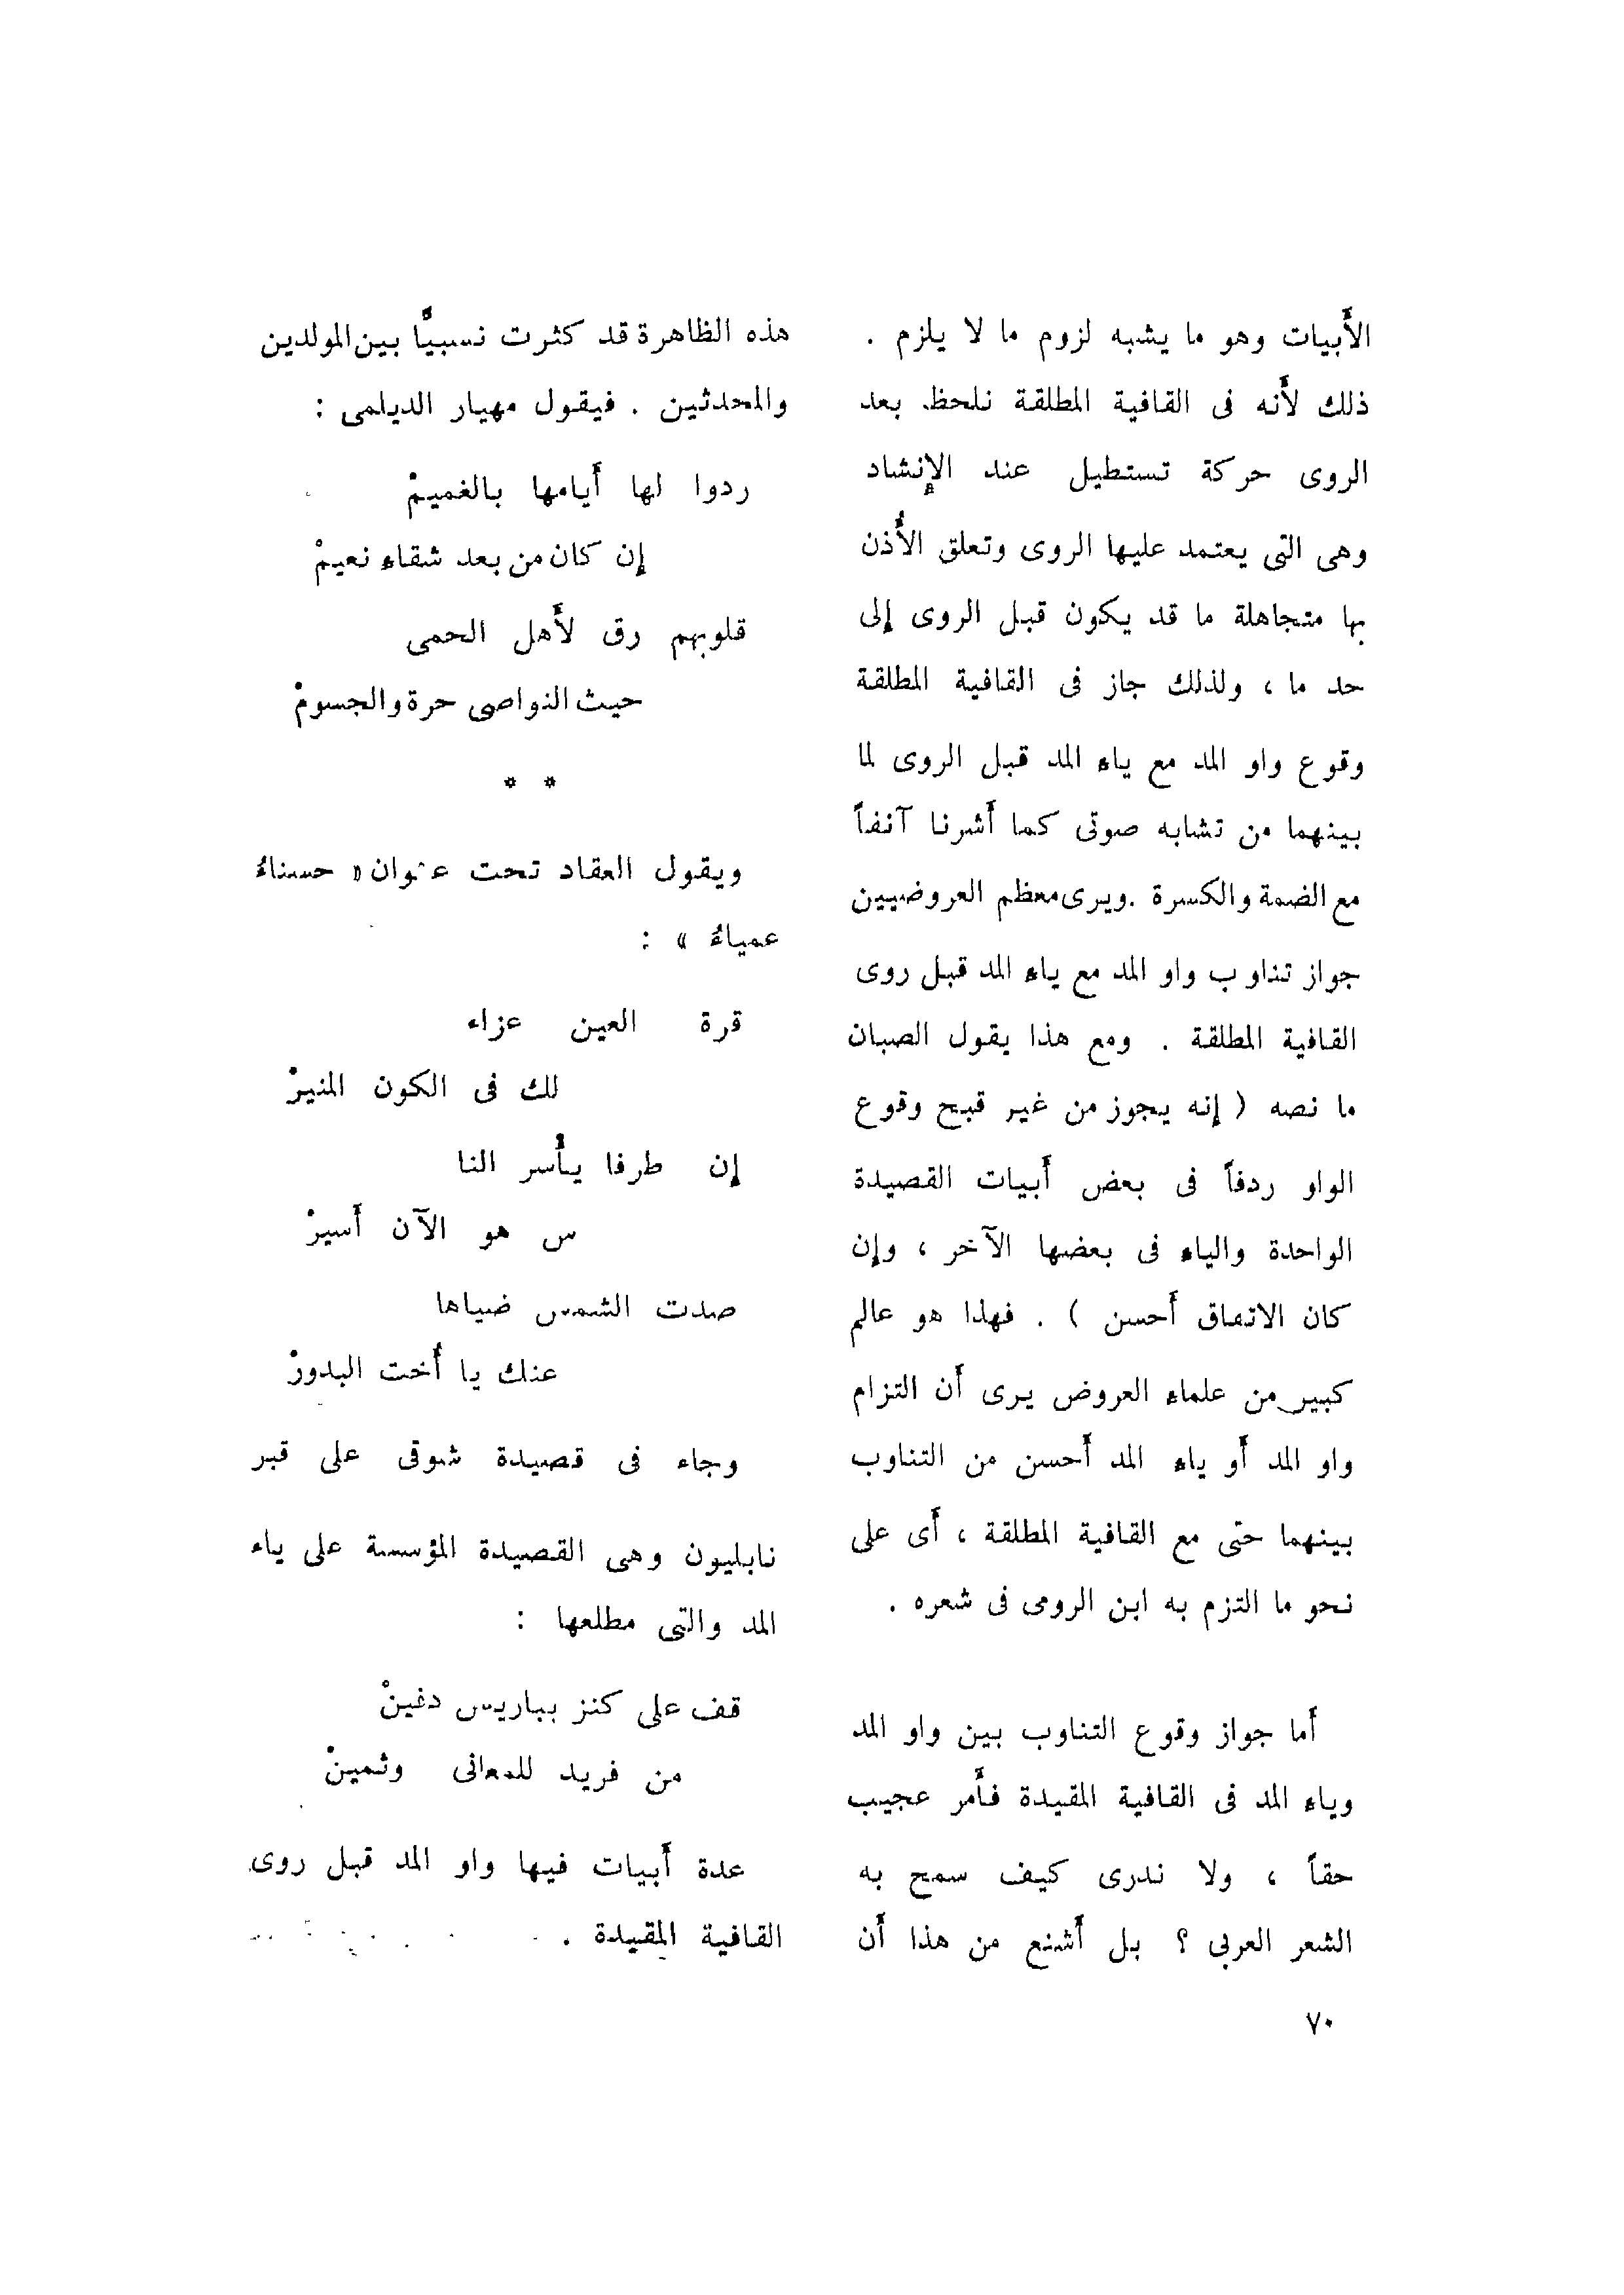 الأَبيات وهو ما يشبه لزوم ما لا يلزم .
ذلك لأَنه فى القافية المطلقة نلحظ بعد
الروى حركة تستطيل عند الإِنشاد
وهى التى يعتمد عليها الروى وتعلق الأُذن
بها متجاهلة ما قد يكون قبل الروى إلى
حد ما ، ولذلك جاز فى القافية المطلقة
وقوع واو المد مع ياء المد قبل الروى لما
بينهما من تشابه صوتى كما أَشرنا آنفاً
مع الضمة والكسرة . ويرى معظم العروضيين
جواز تناوب واو المد مع ياء المد قبل روى
القافية المطلقة . ومع هذا يقول الصبان
ما نصه ( إنه يجوز من غير قبح وقوع
الواو ردفاً فى بعض أَبيات القصيدة
الواحدة والياء فى بعضها الآخر ، وإن
كان الاتفاق أَحسن ) . فهذا هو عالم
كبير من علماء العروض يرى أَن التزام
واو المد أَو ياء المد أَحسن من التناوب
بينهما حتى مع القافية المطلقة ، أَى على
نحو ما التزم به ابن الرومى فى شعره .
أَما جواز وقوع التناوب بين واو المد
وياء المد فى القافية المقيدة فأَمر عجيب
حقاً ، ولا ندرى كيف سمح به
الشعر العربى ؟ بل أَشنع من هذا أَن
هذه الظاهرة قد كثرت نسبيًّا بين المولدين
والمحدثين . فيقول مهيار الديلمى :
ردوا لها أَيامها بالغميمْ
إن كان من بعد شقاء نعيمْ
قلوبهم رق لأَهل الحمى
حيث النواصى حرة والجسومْ
* *
ويقول العقاد تحت عنوان « حسناءُ
عمياءُ » :
قرة العين عزاء
لك فى الكون المنيرْ
إن طرفا يأْسر النا
س هو الآن أَسيرْ
صدت الشمس ضياها
عنك يا أُخت البدورْ
وجاء فى قصيدة شوقى على قبر
نابليون وهى القصيدة المؤسسة على ياء
المد والتى مطلعها :
قف على كنز بباريس دفينْ
من فريد للمعانى وثمينْ
عدة أَبيات فيها واو المد قبل روى
القافية المقيدة .
٧٠